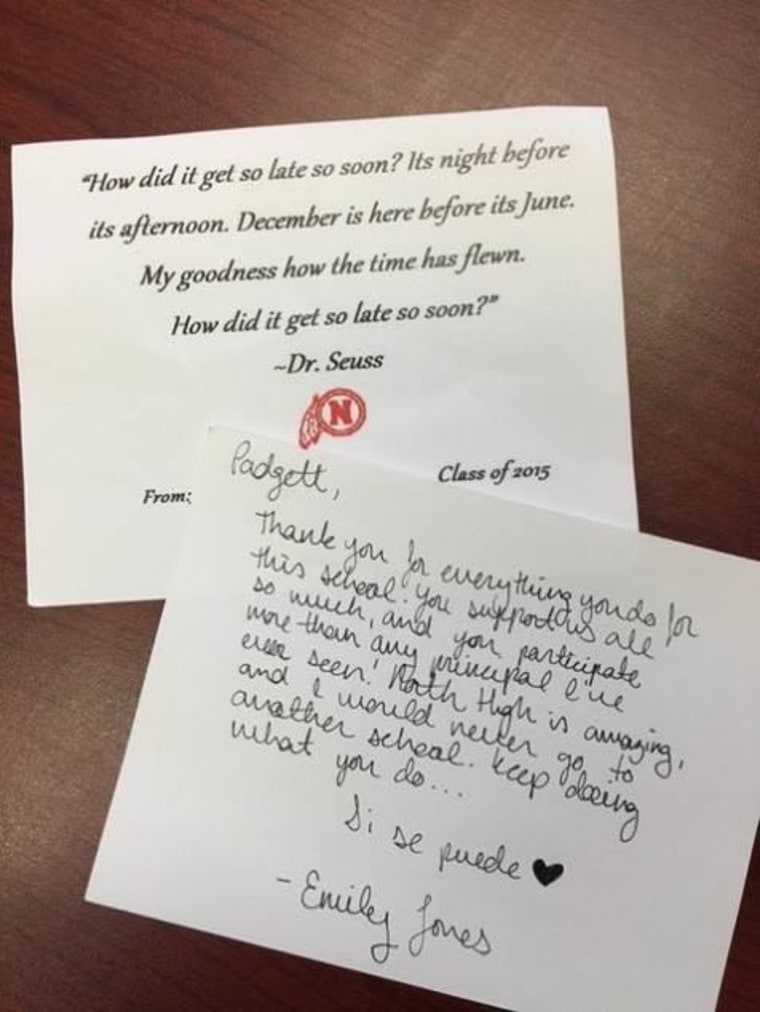 "How did it get so late so soon? Its night before
its afternoon. December is here before its June.
My goodness how the time has flewn.
How did it get so late so soon?"
~Dr. Seuss
N
Class of 2015
From:
Padgett,
Thank you for everything you do for
this school. You support us all
so much, and you participate
more than any principal I've
ever seen! North High is amazing,
and I would never go to
another school. Keep doing
what you do...
Si se puede ♥
- Emily Jones